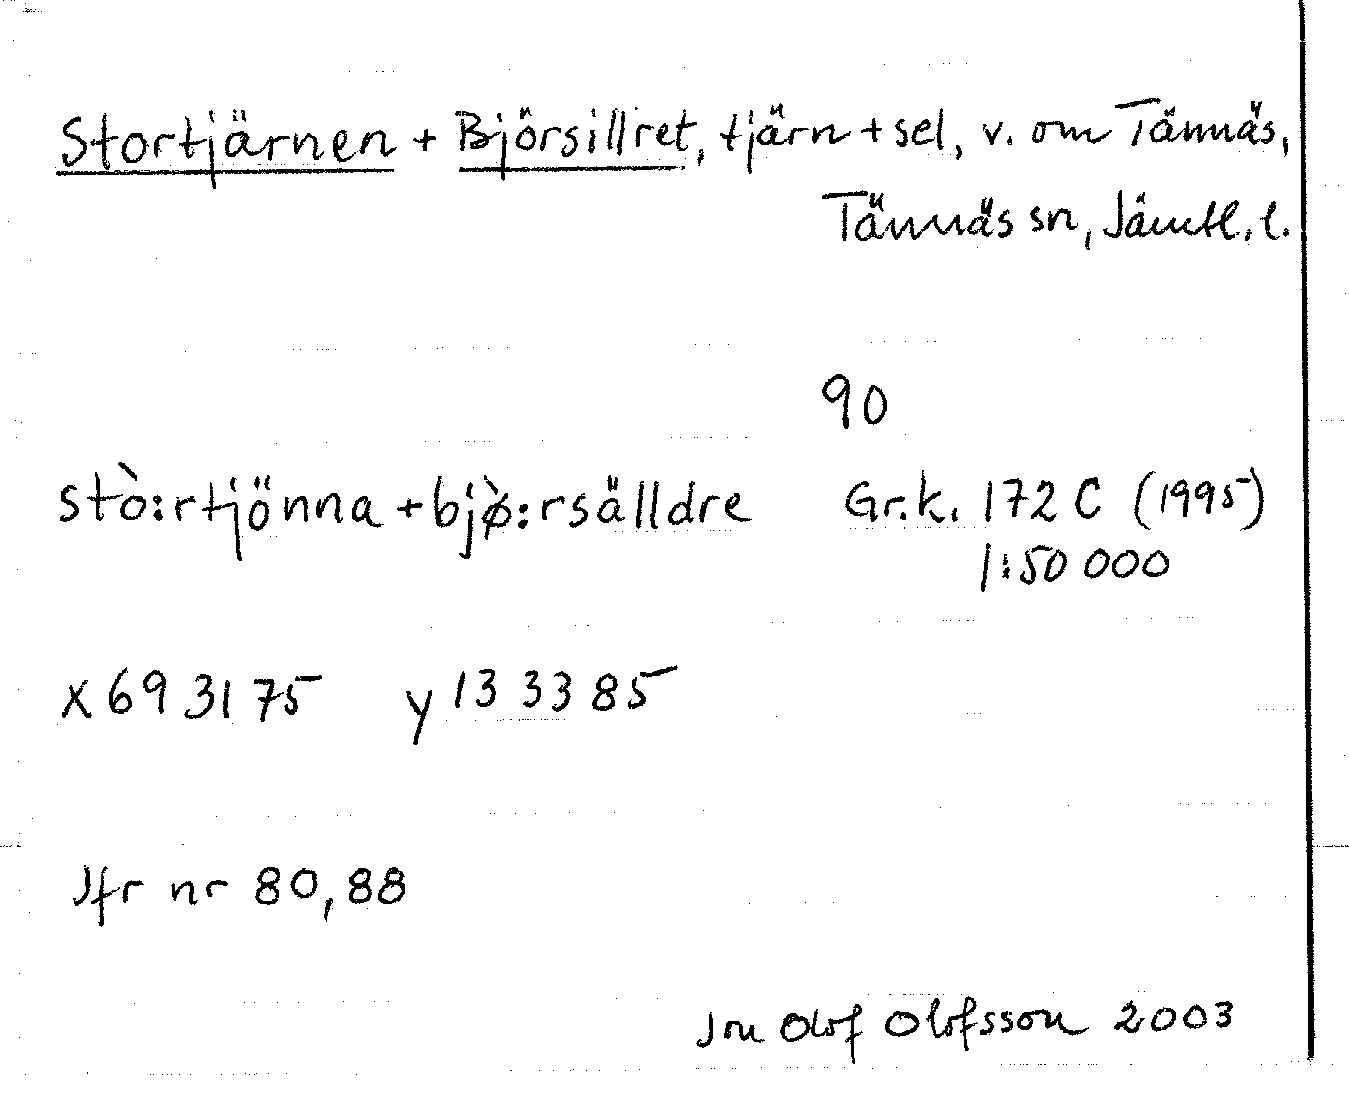 Stortjärnen + Björsillret, tjärn + sel, v. om Tännäs,
Tännäs sn, Jämtl. l.
90
stò:rtjönna + bjø̀:rsälldre Gr.k. 172 C (1995)
1:50 000
x 69 31 75 y 13 33 85
Jfr nr 80, 88
Jon Olof Olofsson 2003